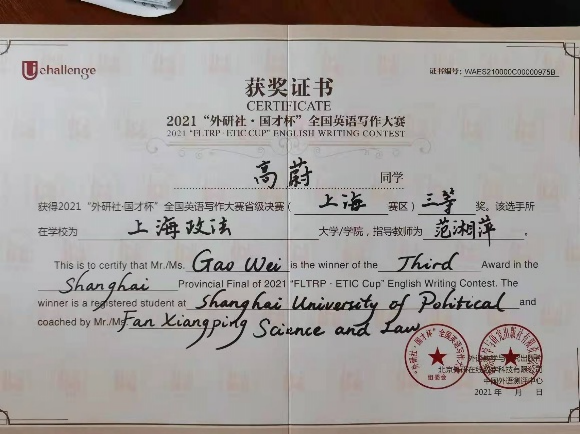 Uchallenge
证书编号：WAES210000C00000975B
获奖证书
CERTIFICATE
2021 “外研社·国才杯” 全国英语写作大赛
2021 “FLTRP·ETIC CUP” ENGLISH WRITING CONTEST
高蔚 同学
获得2021 “外研社·国才杯” 全国英语写作大赛省级决赛（ 上海 赛区）三等 奖。该选手所
在学校为 上海政法 大学/学院，指导教师为 范湘萍 。
This is to certify that Mr./Ms. Gao Wei is the winner of the Third Award in the
Shanghai Provincial Final of 2021 “FLTRP·ETIC Cup” English Writing Contest. The
winner is a registered student at Shanghai University of Political and
coached by Mr./Ms. Fan Xiangping Science and Law
中国外语测评中心
2021年 月 日